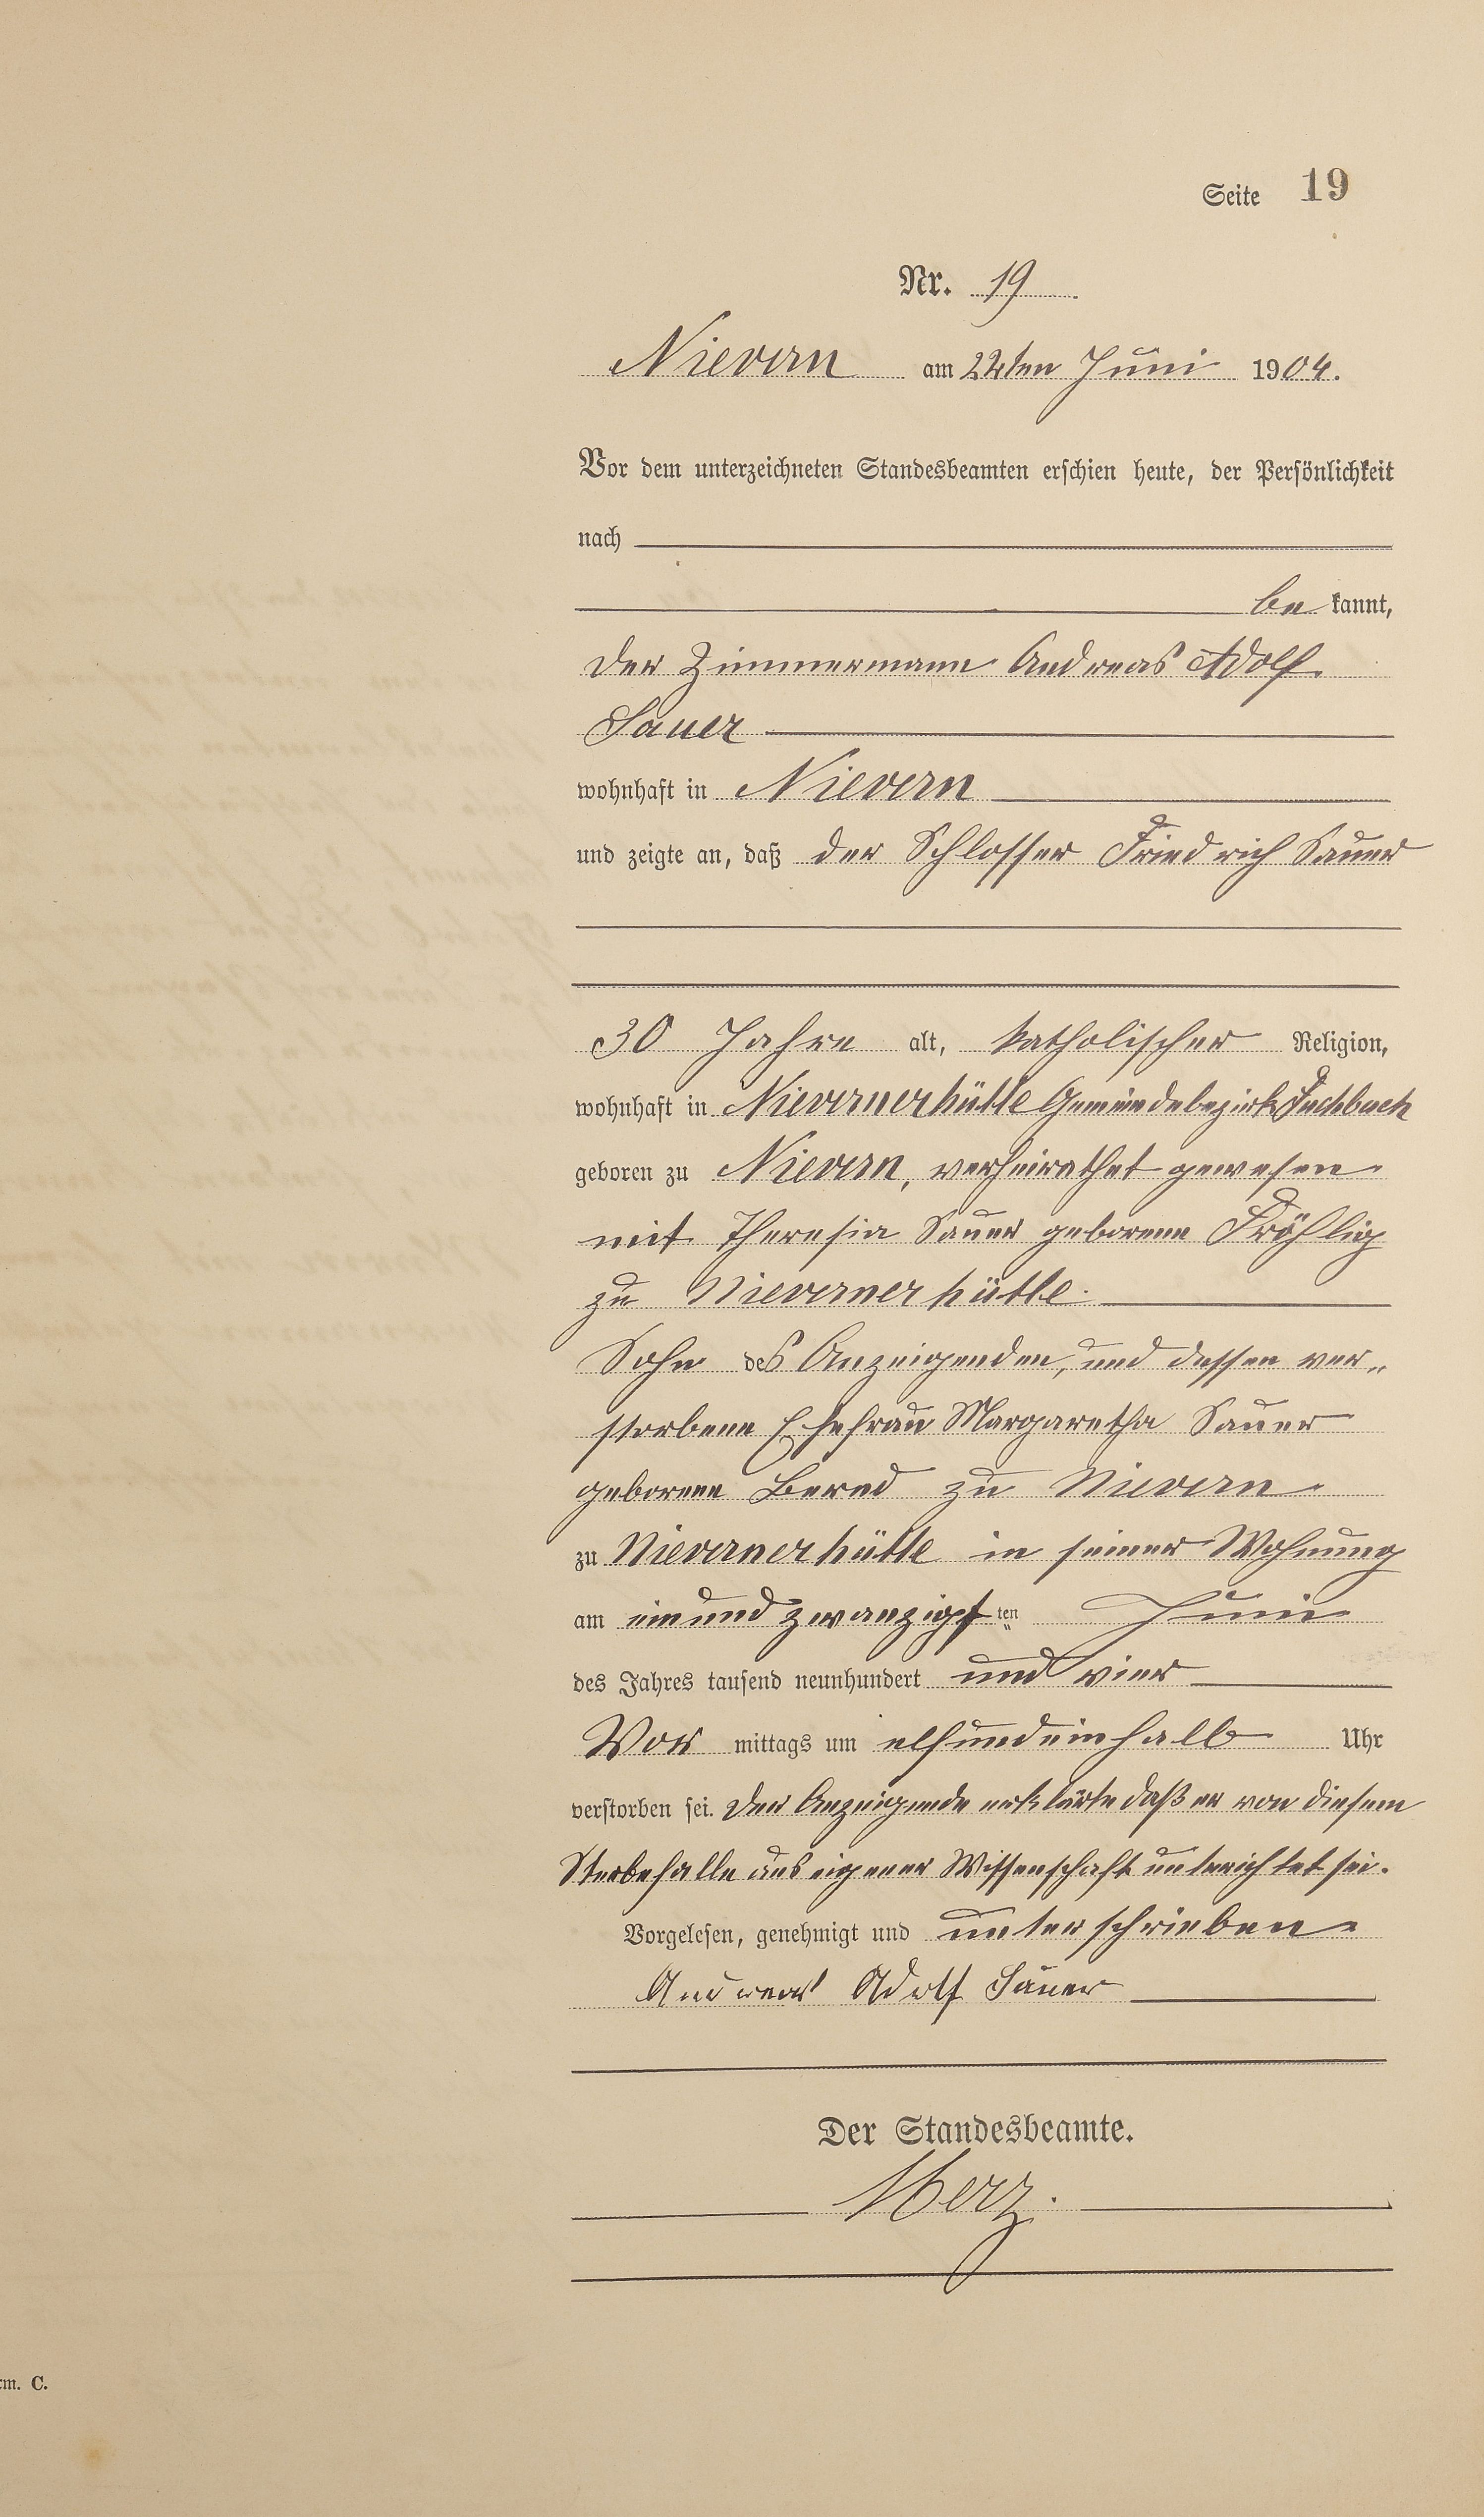 Seite 19
Nr. 19
Nievern am 22ten Juni 1904.
Vor dem unterzeichneten Standesbeamten erschien heute, der Persönlichkeit
nach
be kannt,
der Zimmermann Andreas Adolf
Sauer
wohnhaft in Nievern
und zeigte an, daß der Schlosser Friedrich Sauer
30 Jahre alt, katholischer Religion,
wohnhaft in Nievernerhütte Gemeindebezirk Fachbach
geboren zu Nievern, verheirathet gewesen
mit Theresia Sauer geborene Fröhlig
zu Nievernerhütte.
Sohn des Anzeigenden, und dessen ver„
storbene Ehefrau Margaretha Sauer
geborene Bernd zu Nievern.
zu Nievernerhütte in seiner Wohnung
am einundzwanzigsten Juni
des Jahres tausend neunhundert und vier
Vor mittags um elfundeinhalb Uhr
verstorben sei. Der Anzeigende erklärte daß er von diesem
Sterbefalle aus eigener Wissenschaft unterrichtet sei.
Vorgelesen, genehmigt und unterschrieben.
Andreas Adolf Sauer
Der Standesbeamte.
Merz.
rm. C.